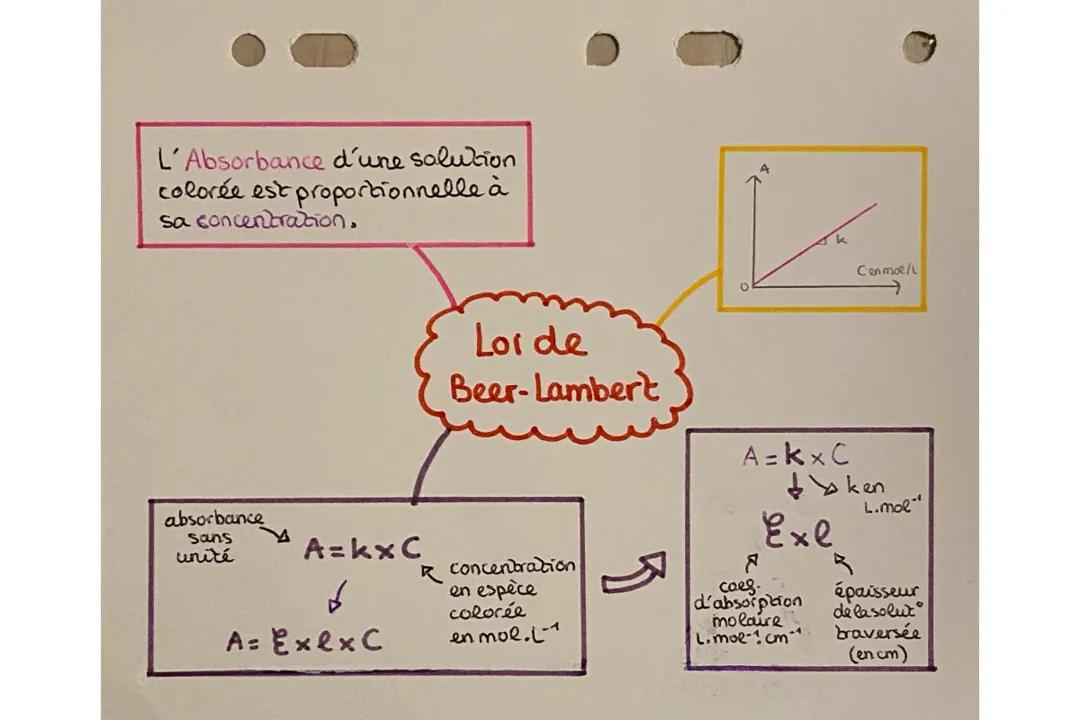 L'Absorbance d'une solution
colorée est proportionnelle à
sa concentration.
A
k
C en mol/L
0
Loi de
Beer-Lambert
absorbance
sans
unité
A = k × C
concentration
en espèce
colorée
en mol.L⁻¹
A = ℰ × l × C
A = k × C
k en
L.mol⁻¹
ℰ × l
coef.
d'absorption
molaire
L.mol⁻¹.cm⁻¹
épaisseur
de la solut°
traversée
(en cm)